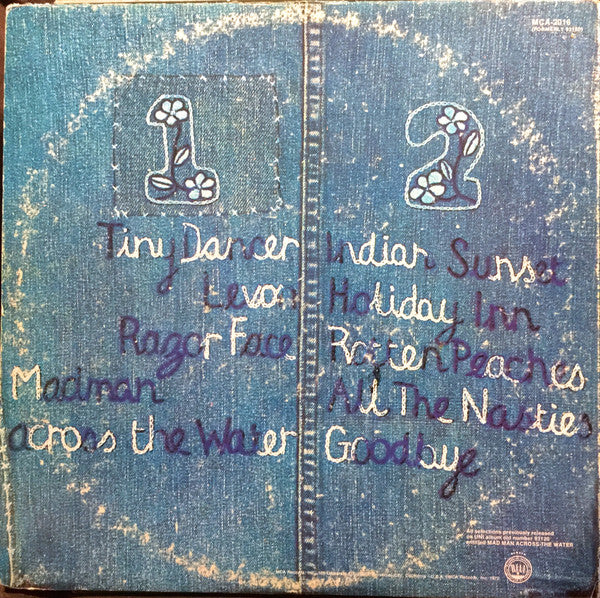 MCA-2016
(FORMERLY 93120)
1
Tiny Dancer
Levon
Razor Face
Madman
across the Water
2
Indian Sunset
Holiday Inn
Rotten Peaches
All The Nasties
Goodbye
All selections previously released
on UNI album old number 93120
entitled MAD MAN ACROSS THE WATER
MCA Records, Inc.
U.S.A.
MCA Records, Inc. 1972